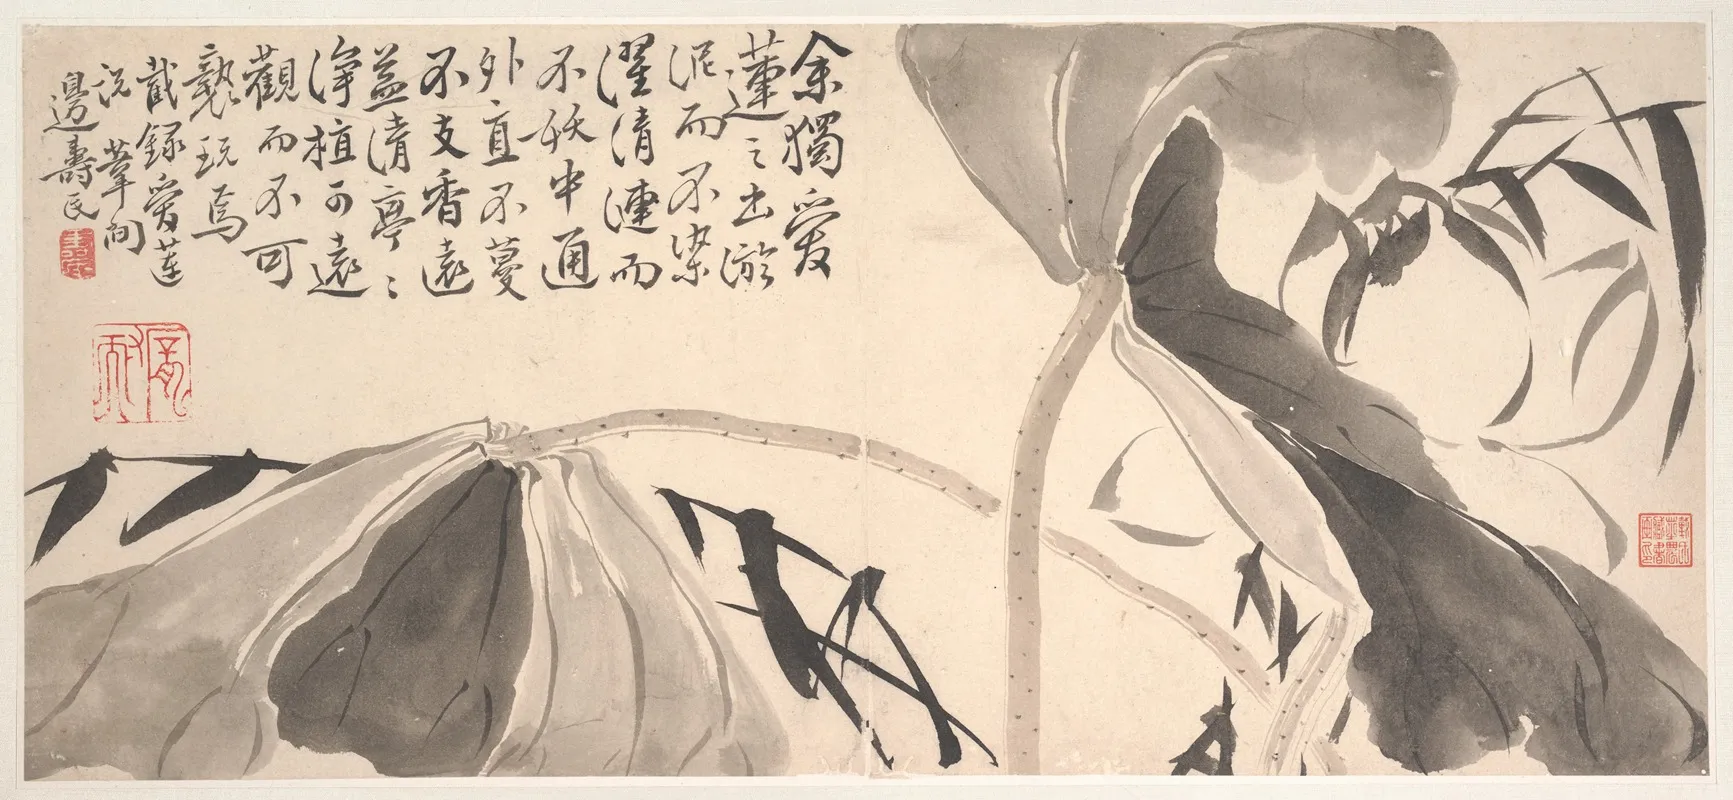 余獨愛
蓮之出淤
泥而不染
濯清漣而
不妖中通
外直不蔓
不支香遠
益清亭〻
淨植可遠
觀而不可
褻玩焉
截錄愛蓮
說 葦間
邊壽民
壽民